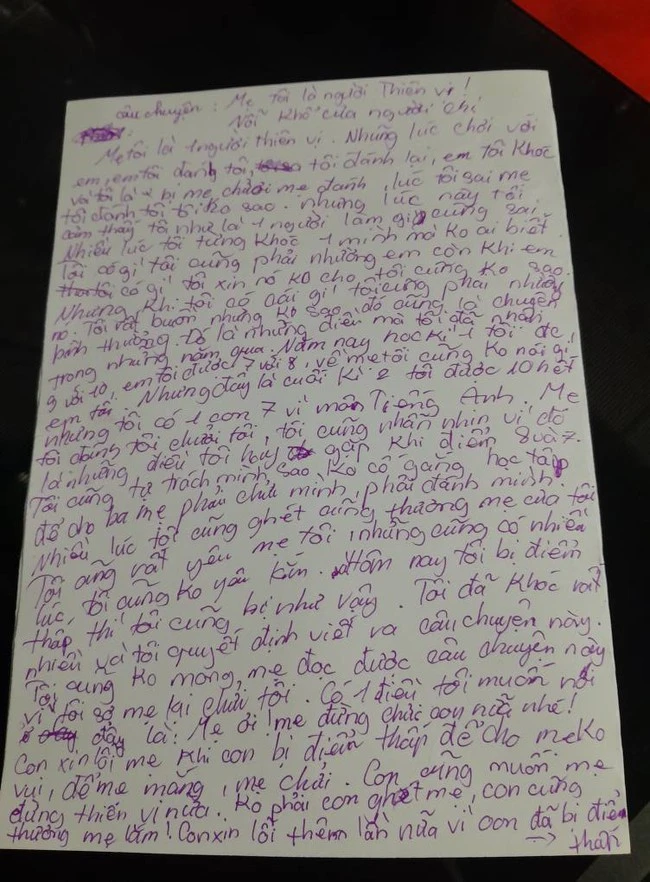 câu chuyện : Mẹ tôi là người Thiên vị !
Nỗi khổ của người chị
Mẹ tôi là 1 người thiên vị. Những lúc chơi với
em, em tôi đánh tôi, tôi đánh lại, em tôi Khóc
và tôi là bị mẹ chửi mẹ đánh, lúc tôi sai mẹ
tôi đánh tôi tôi Ko sao. nhưng lúc này tôi
cảm thấy tôi như là 1 người làm gì cũng sai,
Nhiều lúc tôi từng Khóc 1 mình mà Ko ai biết.
Tôi có gì tôi cũng phải nhường em còn khi em
tôi có gì tôi xin nó Ko cho tôi cũng Ko sao.
Nhưng Khi tôi có cái gì tôi cũng phải nhường
nó. Tôi rất buồn nhưng Ko sao đó cũng là chuyện
bình thường. Đó là những điều mà tôi đã nhận
trong những năm qua. Năm nay học kì 1 tôi đc
9 với 10, em tôi được 7 với 8, về mẹ tôi cũng Ko nói gì
em tôi. Nhưng đây là cuối Kì 2 tôi được 10 hết
nhưng tôi có 1 con 7 vì môn Tiếng Anh. Mẹ
tôi đánh tôi chửi tôi, tôi cũng nhẫn nhịn vì đó
là những điều tôi hay gặp khi điểm 8 và 7.
Tôi cũng tự trách mình sao Ko cố gắng học tập
để cho ba mẹ phải chửi mình, phải đánh mình.
Nhiều lúc tôi cũng ghét cũng thương mẹ của tôi
Tôi cũng rất yêu mẹ tôi, nhưng cũng có nhiều
lúc, tôi cũng Ko yêu lắm. Hôm nay tôi bị điểm
thấp thì tôi cũng bị như vậy. Tôi đã Khóc rất
nhiều và tôi quyết định viết ra câu chuyện này.
Tôi cũng Ko mong mẹ đọc được câu chuyện này
vì tôi sợ mẹ lại chửi tôi. Có 1 điều tôi muốn nói
ở đây là: Mẹ ơi ! mẹ đừng chửi con nữa nhé!
Con xin lỗi mẹ khi con bị điểm thấp để cho mẹ Ko
vui, để mẹ mắng, mẹ chửi. Con cũng muốn mẹ
đừng thiên vị nữa. Ko phải con ghét mẹ, con cũng
thương mẹ lắm! Con xin lỗi thêm lần nữa vì con đã bị điểm
→ thấp